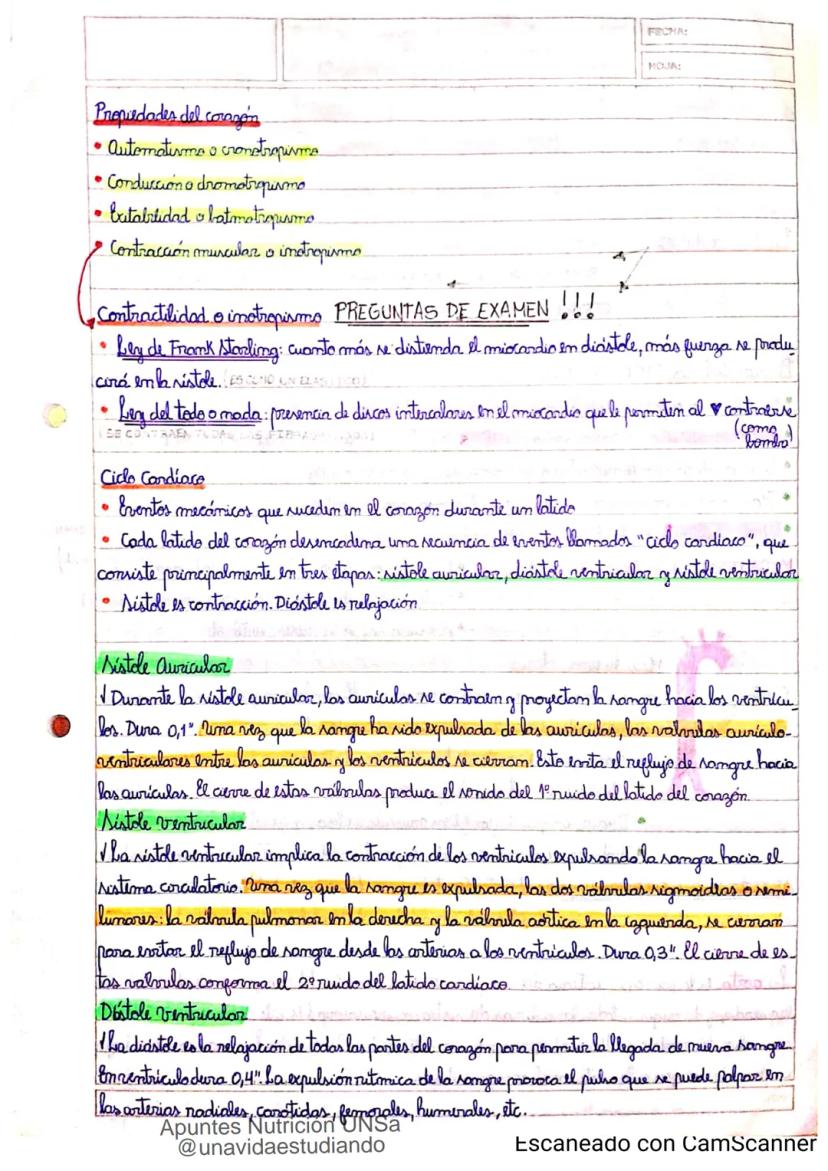 FECHA:
HOJA:
Propiedades del corazón
• Automatismo o cronotropismo
• Conducción o dromotropismo
• Exitabilidad o batmotropismo
• Contracción muscular o inotropismo
Contractilidad o inotropismo PREGUNTAS DE EXAMEN !!!
• Ley de Frank Starling: cuanto más se distienda el miocardio en diástole, más fuerza se produ_
cirá en la sístole. (ES COMO UN ELASTICO)
• Ley del todo o nada: presencia de discos intercalares en el miocardio que le permiten al ♥ contraerse
(SE CONTRAEN TODAS LAS FIBRAS
(como
bomba)
Ciclo Cardíaco
• Eventos mecánicos que suceden en el corazón durante un latido
• Cada latido del corazón desencadena una secuencia de eventos llamados "ciclo cardíaco", que
consiste principalmente en tres etapas: sístole auricular, diástole ventricular y sístole ventricular
• Sístole es contracción. Diástole es relajación
Sístole Auricular
√ Durante la sístole auricular, las aurículas se contraen y proyectan la sangre hacia los ventrícu_
los. Dura 0,1". Una vez que la sangre ha sido expulsada de las aurículas, las válvulas aurículo-
ventriculares entre las aurículas y los ventrículos se cierran. Esto evita el reflujo de sangre hacia
las aurículas. El cierre de estas válvulas produce el sonido del 1º ruido del latido del corazón.
Sístole ventricular
√ La sístole ventricular implica la contracción de los ventrículos expulsando la sangre hacia el
sistema circulatorio. Una vez que la sangre es expulsada, las dos válvulas sigmoideas o semi_
lunares: la válvula pulmonar en la derecha y la válvula aórtica en la izquierda, se cierran
para evitar el reflujo de sangre desde las arterias a los ventrículos. Dura 0,3". El cierre de es_
tas valvulas conforma el 2º ruido del latido cardíaco.
Diástole ventricular
√ La diástole es la relajación de todas las partes del corazón para permitir la llegada de nueva sangre.
En ventrículo dura 0,4". La expulsión rítmica de la sangre provoca el pulso que se puede palpar en
las arterias radiales, carótidas, femorales, humerales, etc.
Apuntes Nutrición UNSa
@unavidaestudiando
Escaneado con CamScanner